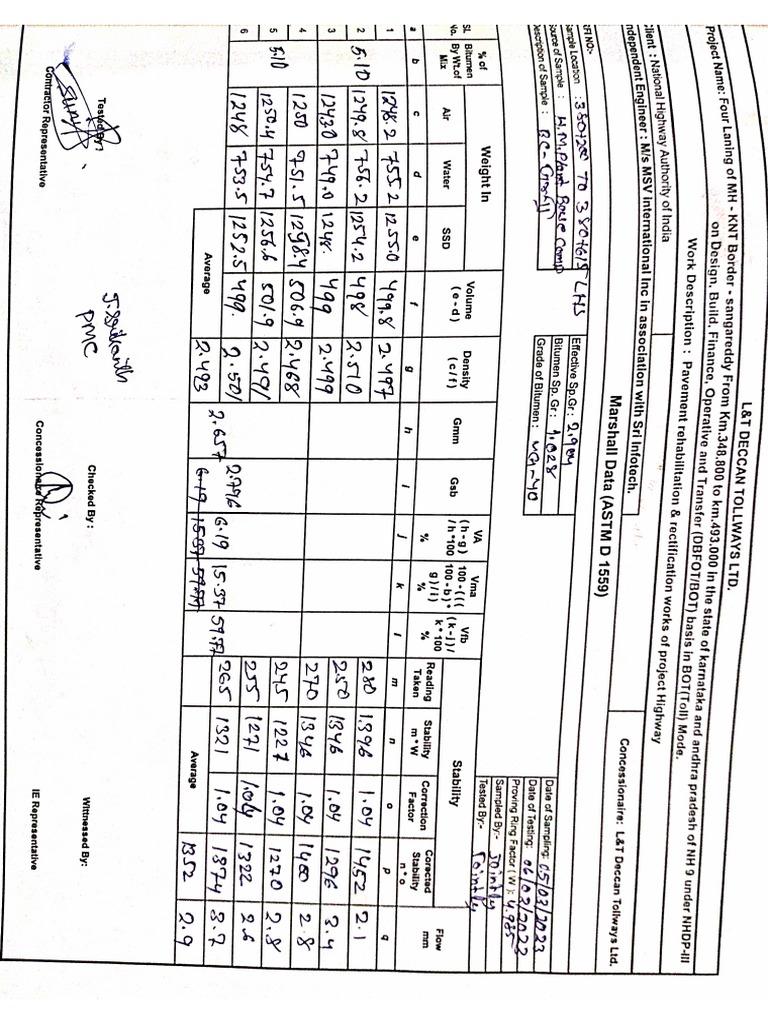 L&T DECCAN TOLLWAYS LTD.
Project Name: Four Laning of MH - KNT Border - sangareddy From Km.348.800 to km.493.000 in the state of karnataka and andhra pradesh of NH 9 under NHDP-III
on Design, Build, Finance, Operative and Transfer (DBFOT/BOT) basis in BOT(Toll) Mode.
Work Description : Pavement rehabilitation & rectification works of project Highway
Client : National Highway Authority of India
Concessionaire: L&T Deccan Tollways Ltd.
Independent Engineer : M/s MSV International Inc in association with Sri Infotech.
Marshall Data (ASTM D 1559)
RFI NO:-
Date of Sampling: 05/02/2023
Sample Location : 380+200 TO 380+615 LHS
Effective Sp.Gr : 2.904
Date of Testing: 06/02/2023
Source of Sample : H.M.Plant Base Camp
Bitumen Sp. Gr : 1.028
Proving Ring Factor ( W ): 4.985
Description of Sample : BC-
Grade of Bitumen : VG-40
Sampled By:- Jointly
Tested By:- Jointly
SL No. % of Bitumen By Wt.of Mix Weight In Volume ( e - d ) Density ( c / f ) Gmm Gsb VA (h - g) / h * 100 % Vma 100 - ((( 100 - b) * g) / i) % Vfb (k - j) / k * 100 % Stability Flow mm
Air Water SSD Reading Taken Stability m * W Correction Factor Corrected Stability n * o
a b c d e f g h i j k l m n o p q
1 1248.2 755.2 1255.0 499.8 2.497 280 1396 1.04 1452 2.1
2 5.10 1249.8 756.2 1254.2 498 2.510 250 1346 1.04 1296 3.4
3 1247.0 749.0 1248. 499 2.499 270 1346 1.04 1400 2.8
4 1250 751.5 1298.4 506.9 2.468 245 1227 1.04 1270 2.8
5 5.10 1250.4 754.7 1256.6 501.9 2.491 255 1271 1.04 1322 2.6
6 1248 753.5 1252.5 499. 2.501 2.746 6.19 15.37 59.77 265 1321 1.04 1374 3.7
Average 2.493 2.657 6.19 15.37 59.77 Average 1352 2.9
Tested By :
Contractor Representative
PMC
Checked By :
Concessionaire Representative
Wittnessed By:
IE Representative